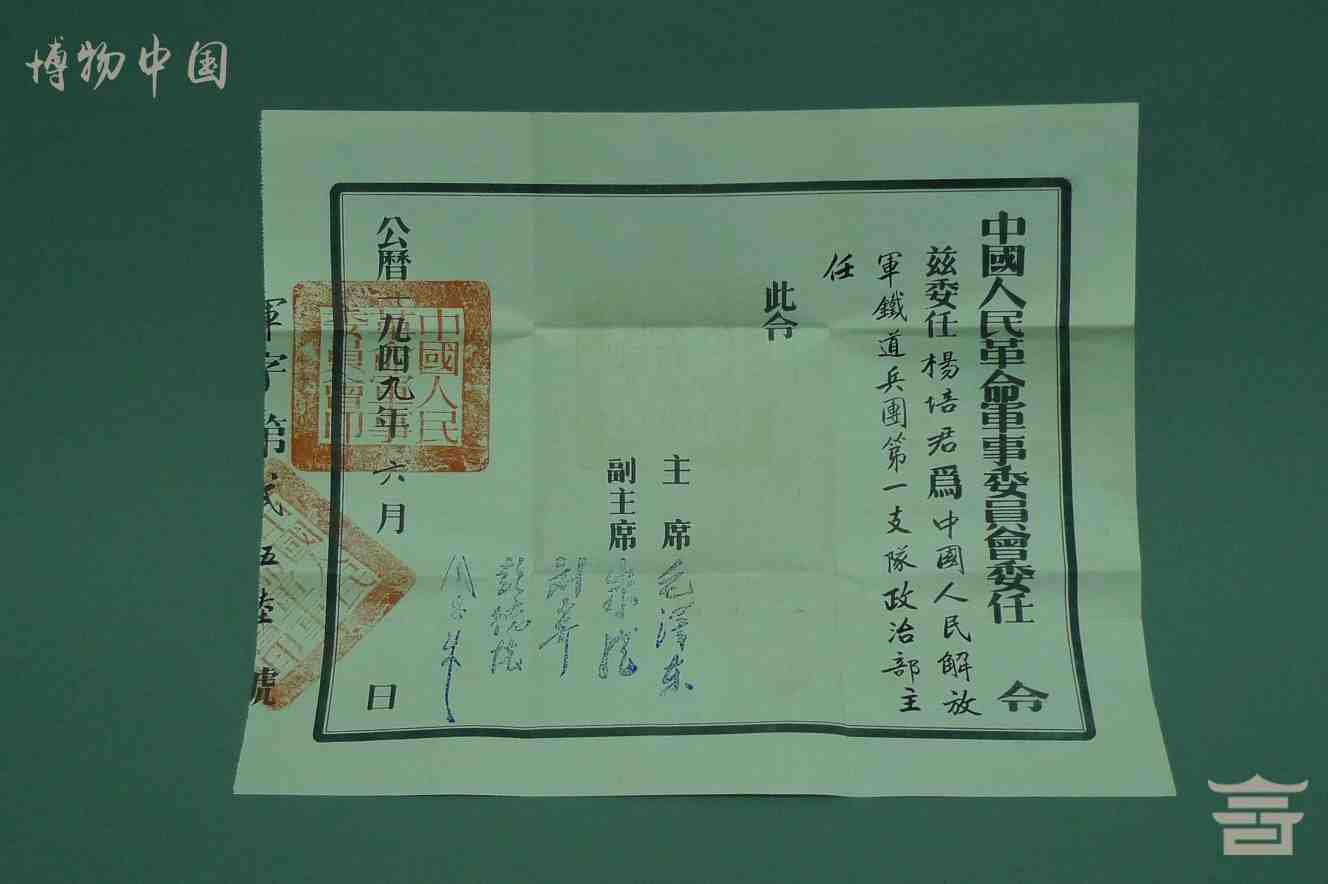 博物中国
中國人民革命軍事委員會委任令
茲委任楊培君爲中國人民解放
軍鐵道兵團第一支隊政治部主
任
此令
主席 毛澤东
副主席 朱德
劉少奇
彭德懷
周恩来
公曆一九四九年六月 日
中國人民
革命軍事
委員會印
軍字第弍五陸號